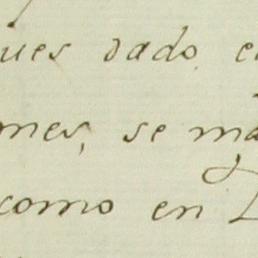 ues dado
mes, se
como en